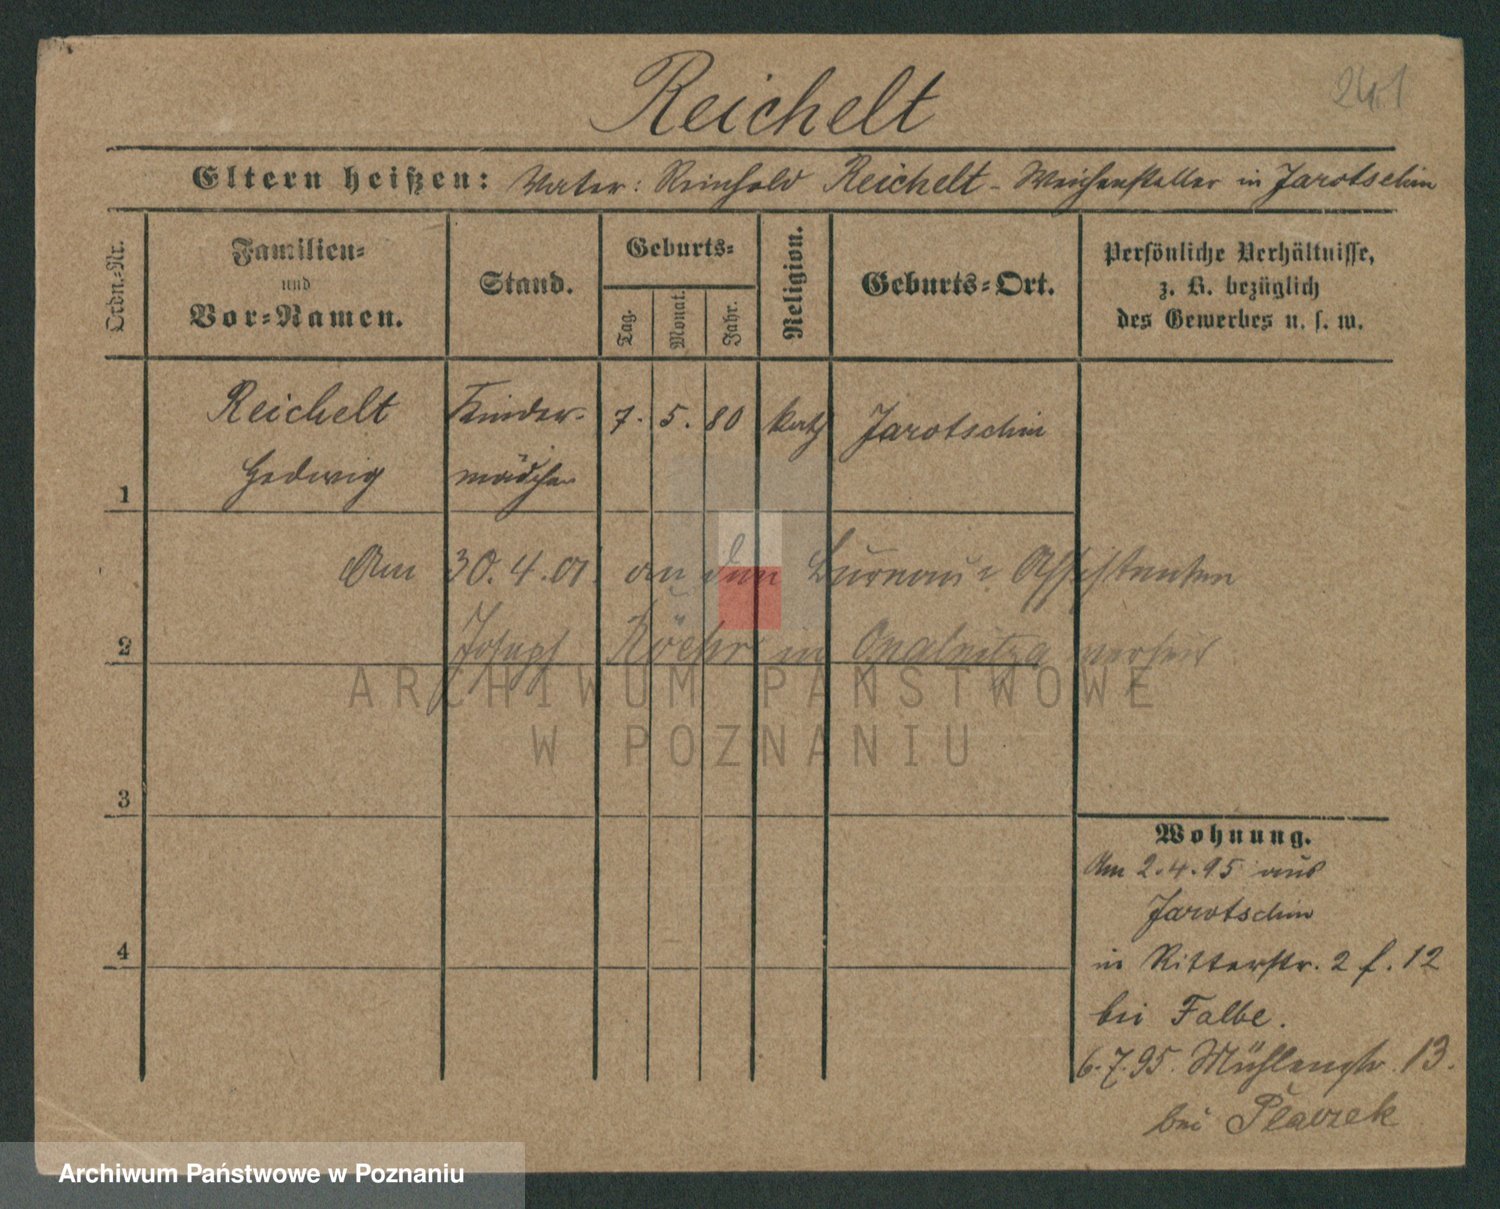 Reichelt
241
Eltern heißen: Vater: Reinhold Reichelt - Weichensteller in Jarotschin
Ordn.-Nr.
Familien-
und
Vor-Namen.
Stand.
Geburts-
Tag.
Monat.
Jahr.
Religion.
Geburts-Ort.
Persönliche Verhältnisse,
z. B. bezüglich
des Gewerbes u. s. w.
1
Reichelt
Hedwig
Kinder-
mädchen
7. 5. 80
kath
Jarotschin
Am 30.4.01 an den Bureau- Assistenten
2
Joseph in Opalenitza verheir
3
4
Wohnung.
Am 2.4.95 aus
Jarotschin
in Ritterstr. 2 f. 12
bei Falbe.
6.7.95. Mühlenstr. 13.
bei
ARCHIWUM PAŃSTWOWE
W POZNANIU
Archiwum Państwowe w Poznaniu